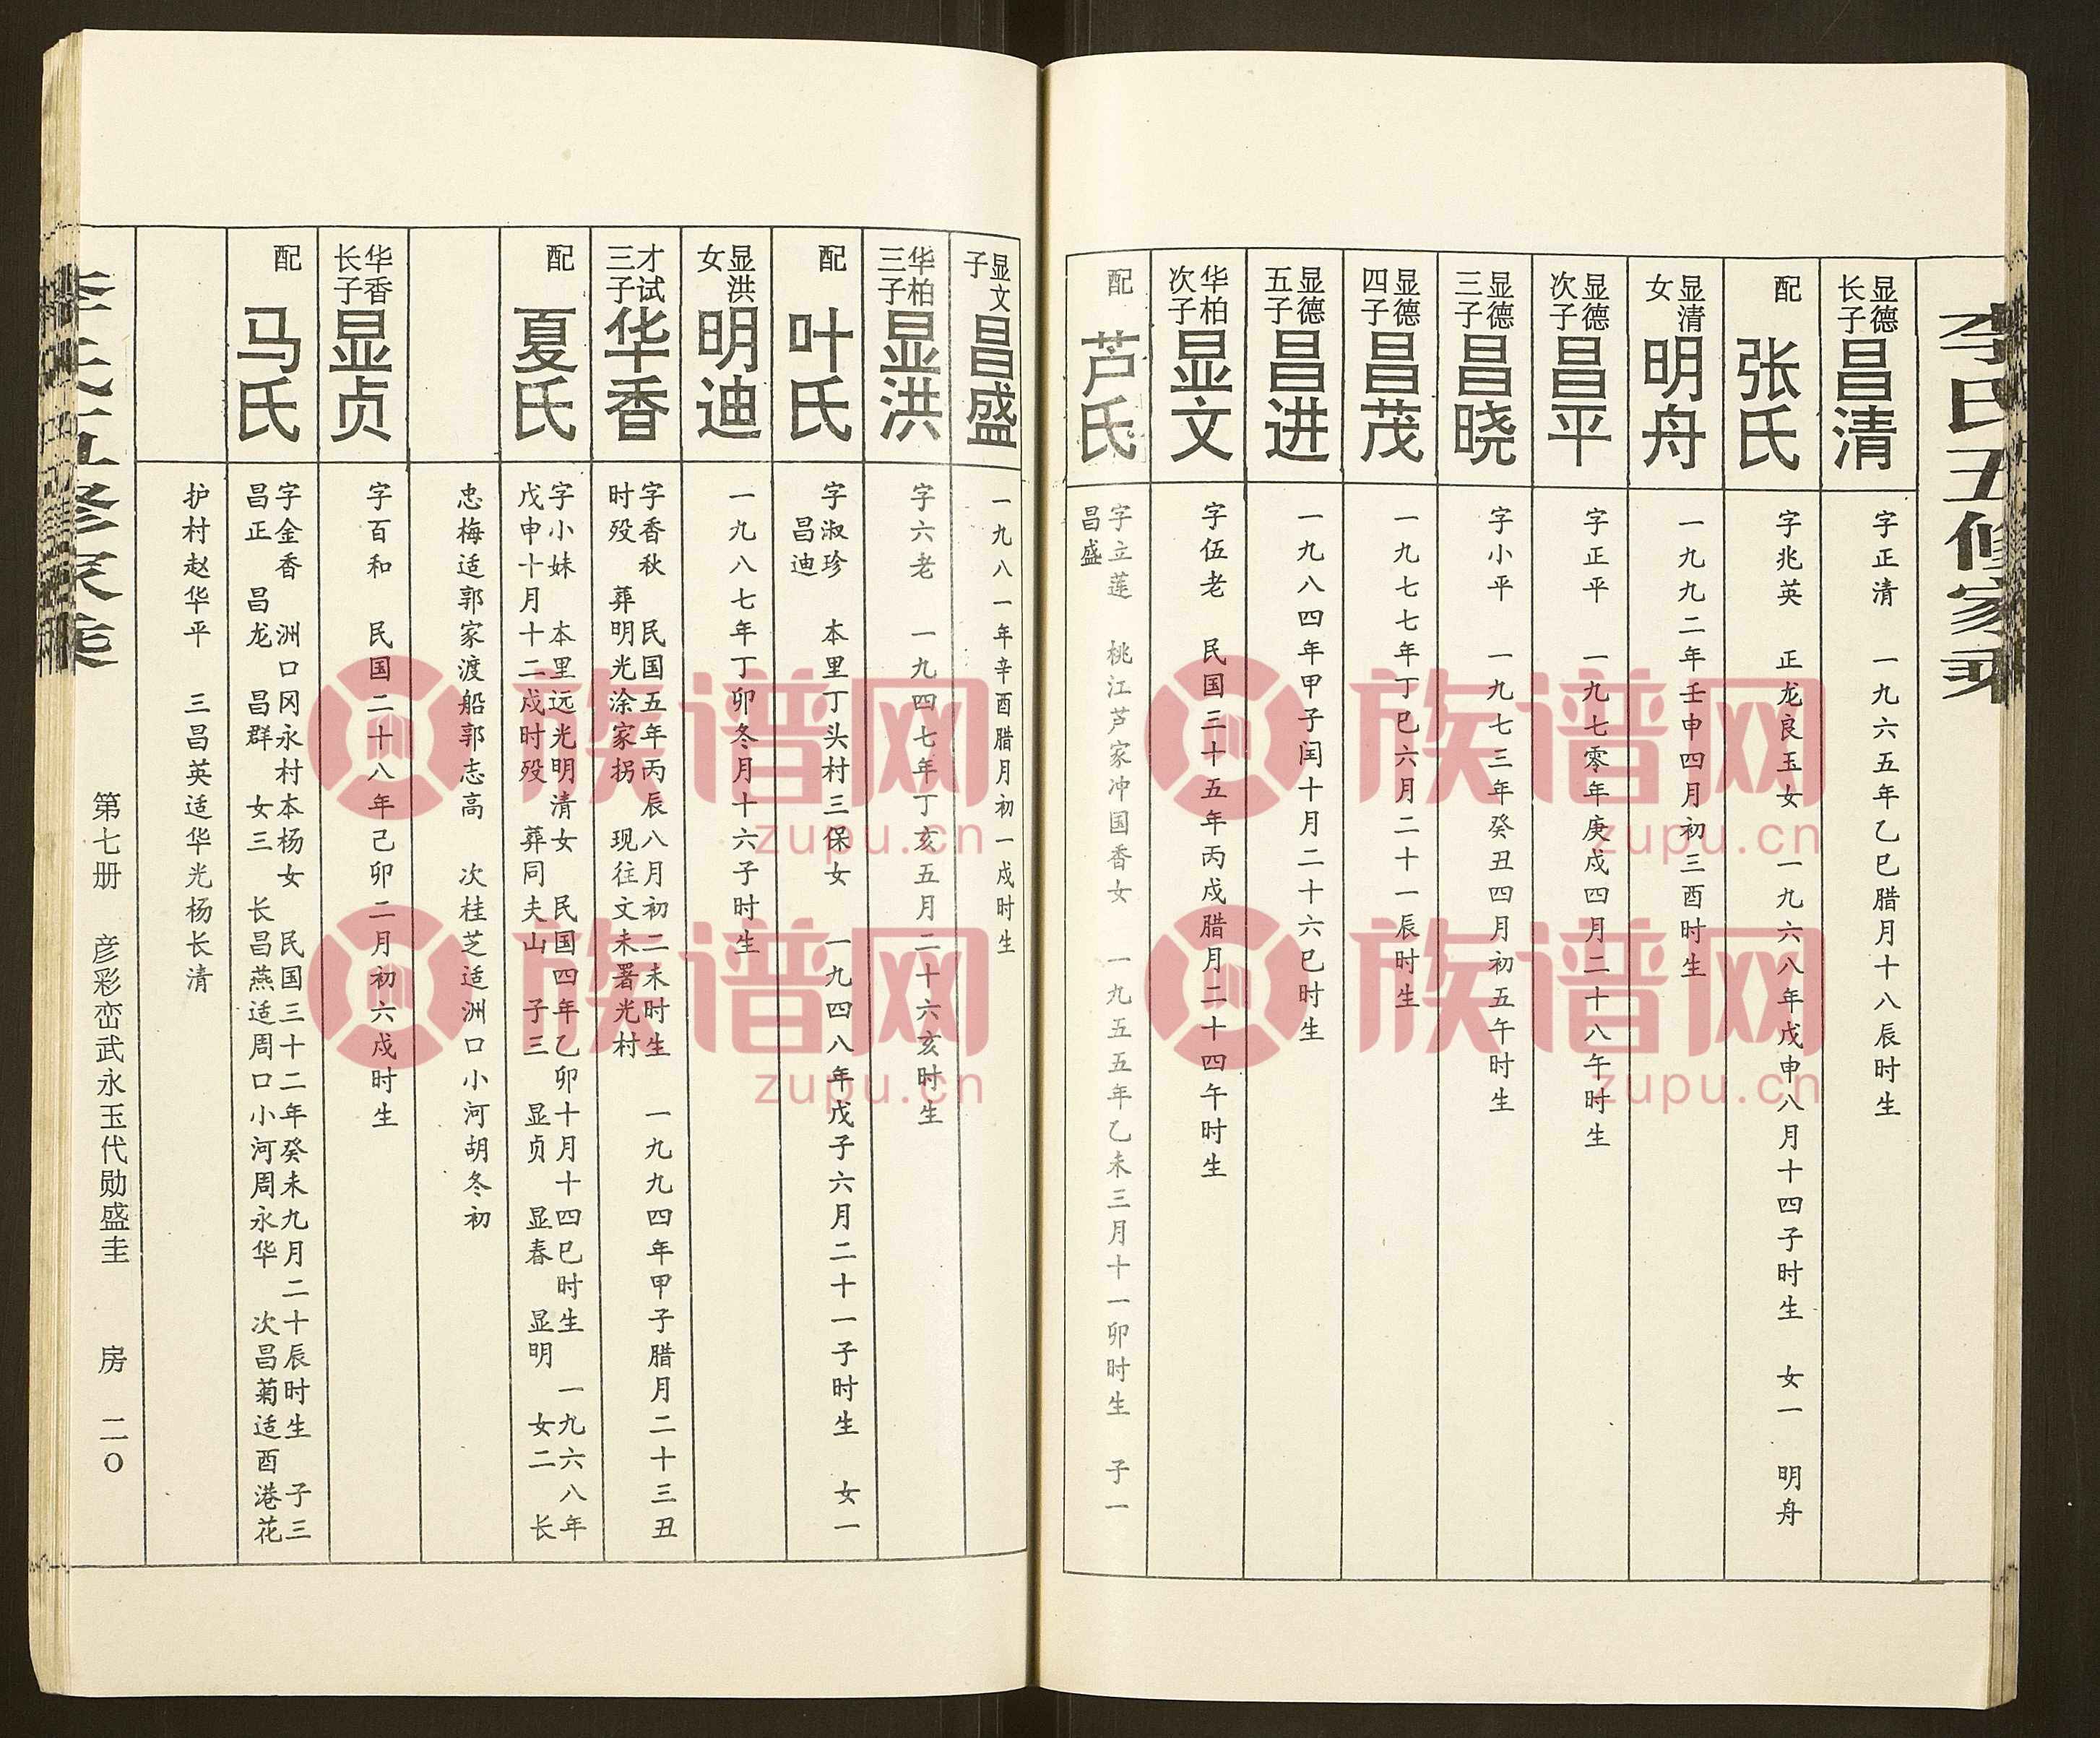 李氏五修家乘
显德
长子
昌清
字正清　一九六五年乙巳腊月十八辰时生
配
张氏
字兆英　正龙良玉女　一九六八年戊申八月十四子时生　女一　明舟
显清
女
明舟
一九九二年壬申四月初三酉时生
显德
次子
昌平
字正平　一九七零年庚戌四月二十八午时生
显德
三子
昌晓
字小平　一九七三年癸丑四月初五午时生
显德
四子
昌茂
一九七七年丁巳六月二十一辰时生
显德
五子
昌进
一九八四年甲子闰十月二十六巳时生
华柏
次子
显文
字伍老　民国三十五年丙戌腊月二十四午时生
配
芦氏
字立莲　桃江芦家冲国香女　一九五五年乙未三月十一卯时生　子一
昌盛
显文
子
昌盛
一九八一年辛酉腊月初一戌时生
华柏
三子
显洪
字六老　一九四七年丁亥五月二十六亥时生
配
叶氏
字淑珍　本里丁头村三保女　一九四八年戊子六月二十一子时生　女一
昌迪
显洪
女
明迪
一九八七年丁卯冬月十六子时生
才试
三子
华香
字香秋　民国五年丙辰八月初二未时生　一九九四年甲子腊月二十三丑
时殁　葬明光涂家拐　现往文未署光村
配
夏氏
字小妹　本里远光明清女　民国四年乙卯十月十四巳时生　一九六八年
戊申十月十二戌时殁　葬同夫山　子三　显贞　显春　显明　女二　长
忠梅适郭家渡船郭志高　次桂芝适洲口小河胡冬初
华香
长子
显贞
字百和　民国二十八年己卯二月初六戌时生
配
马氏
字金香　洲口冈永村本杨女　民国三十二年癸未九月二十辰时生　子三
昌正　昌龙　昌群　女三　长昌燕适周口小河周永华　次昌菊适酉港花
护村赵华平　三昌英适华光杨长清
李氏五修家乘
第七册　彦彩峦武永玉代勋盛圭　房　二〇
族谱网
zupu.cn
族谱网
zupu.cn
族谱网
zupu.cn
族谱网
zupu.cn